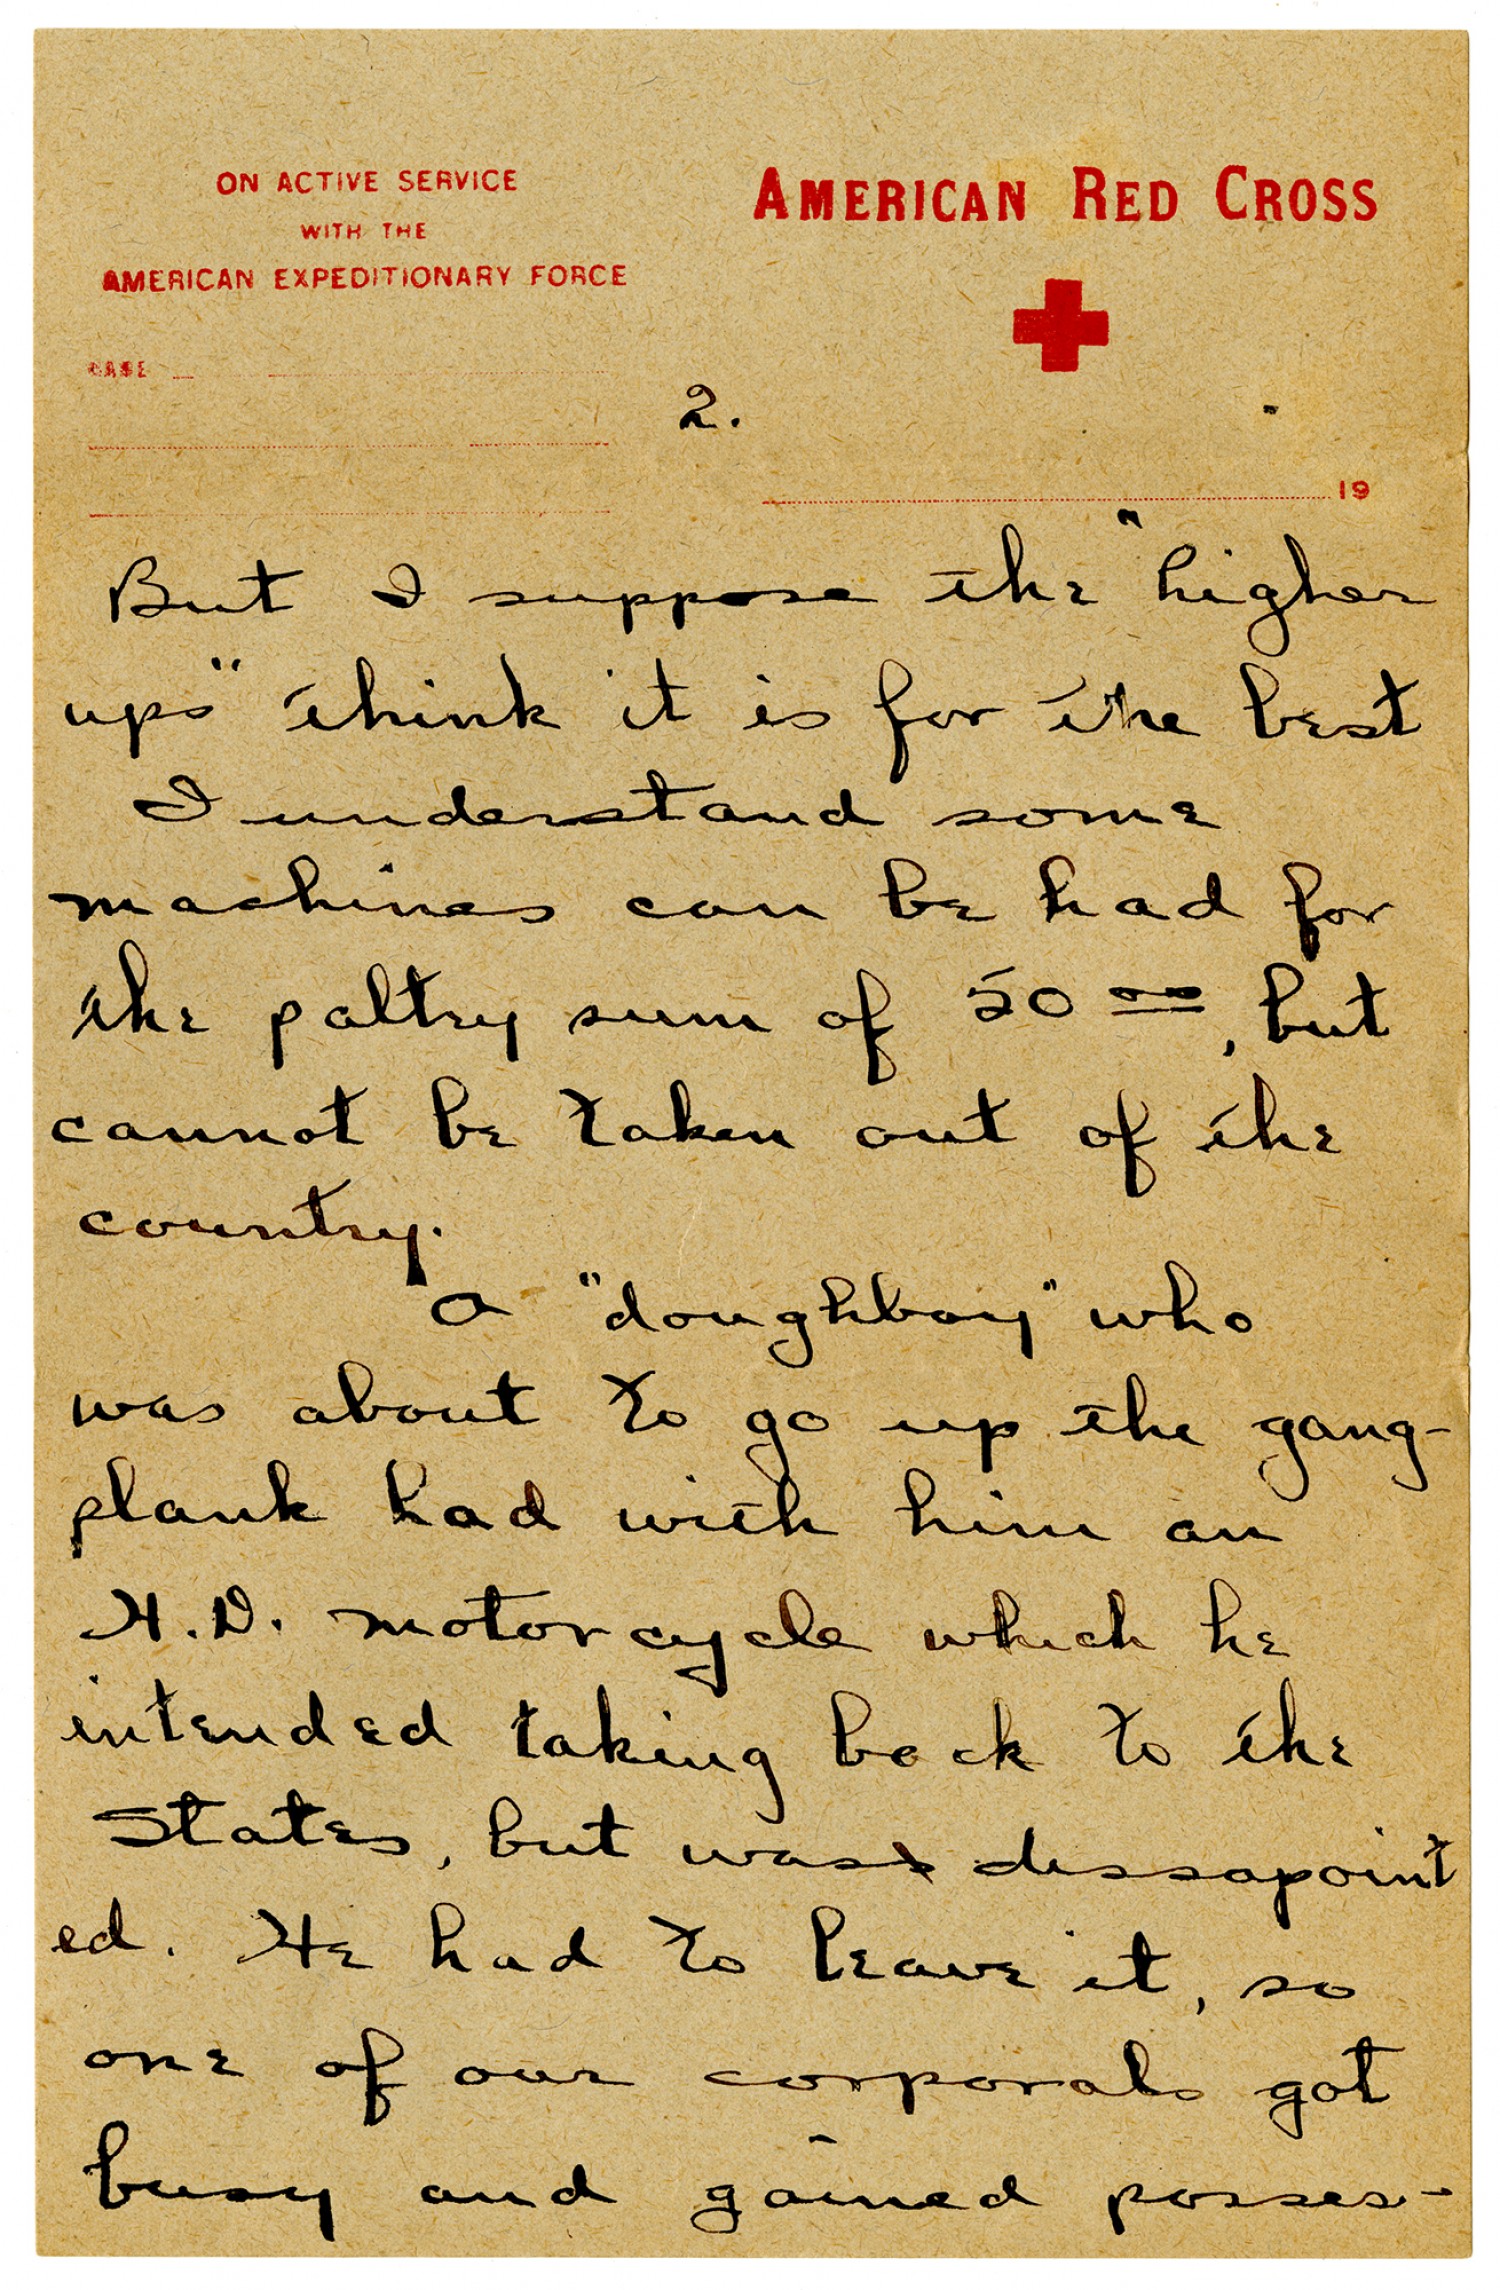 ON ACTIVE SERVICE
WITH THE
AMERICAN EXPEDITIONARY FORCE
AMERICAN RED CROSS
2.
19
But I suppose the "higher
ups" think it is for the best
I understand some
machines can be had for
the paltry sum of 50 00, but
cannot be taken out of the
country.
A "doughboy" who
was about to go up the gang-
plank had with him an
H.D. motorcycle which he
intended taking back to the
States, but was dissapoint
ed. He had to leave it, so
one of our corporals got
busy and gained posses-